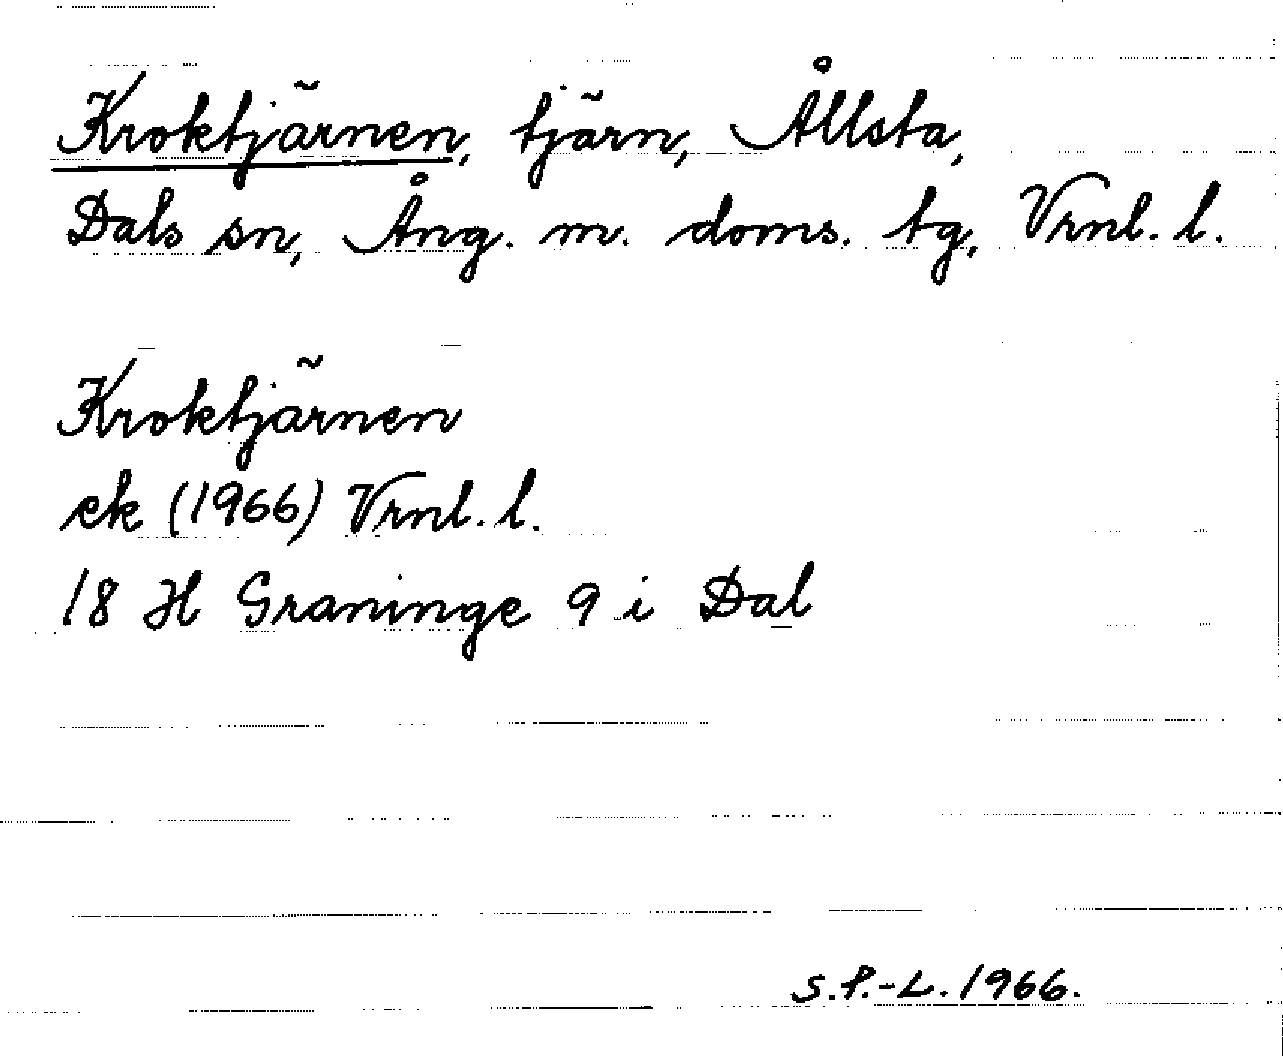 Kroktjärnen, tjärn, Ållsta,
Dals sn, Ång. m. doms. tg, Vrnl. l.
Kroktjärnen
ek (1966) Vrnl. l.
18 H Graninge 9 i Dal
S.P.-L. 1966.